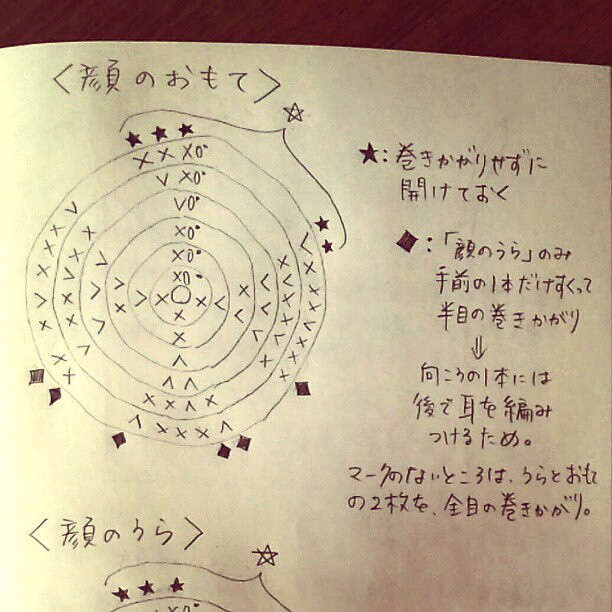 〈顔のおもて〉
☆
★:巻きかがりせずに
開けておく
◆:「顔のうら」のみ
手前の1本だけすくって
半目の巻きかがり
⇓
向こうの1本には
後で耳を編み
つけるため。
マークのないところは、うらとおもて
の2枚を、全目の巻きかがり。
〈顔のうら〉
☆